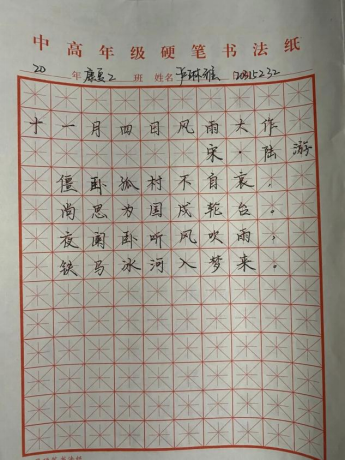 中高年级硬笔书法纸
20 年 康复2 班 姓名
十一月四日风雨大作
宋·陆游
僵卧孤村不自哀，
尚思为国戍轮台。
夜阑卧听风吹雨，
铁马冰河入梦来。